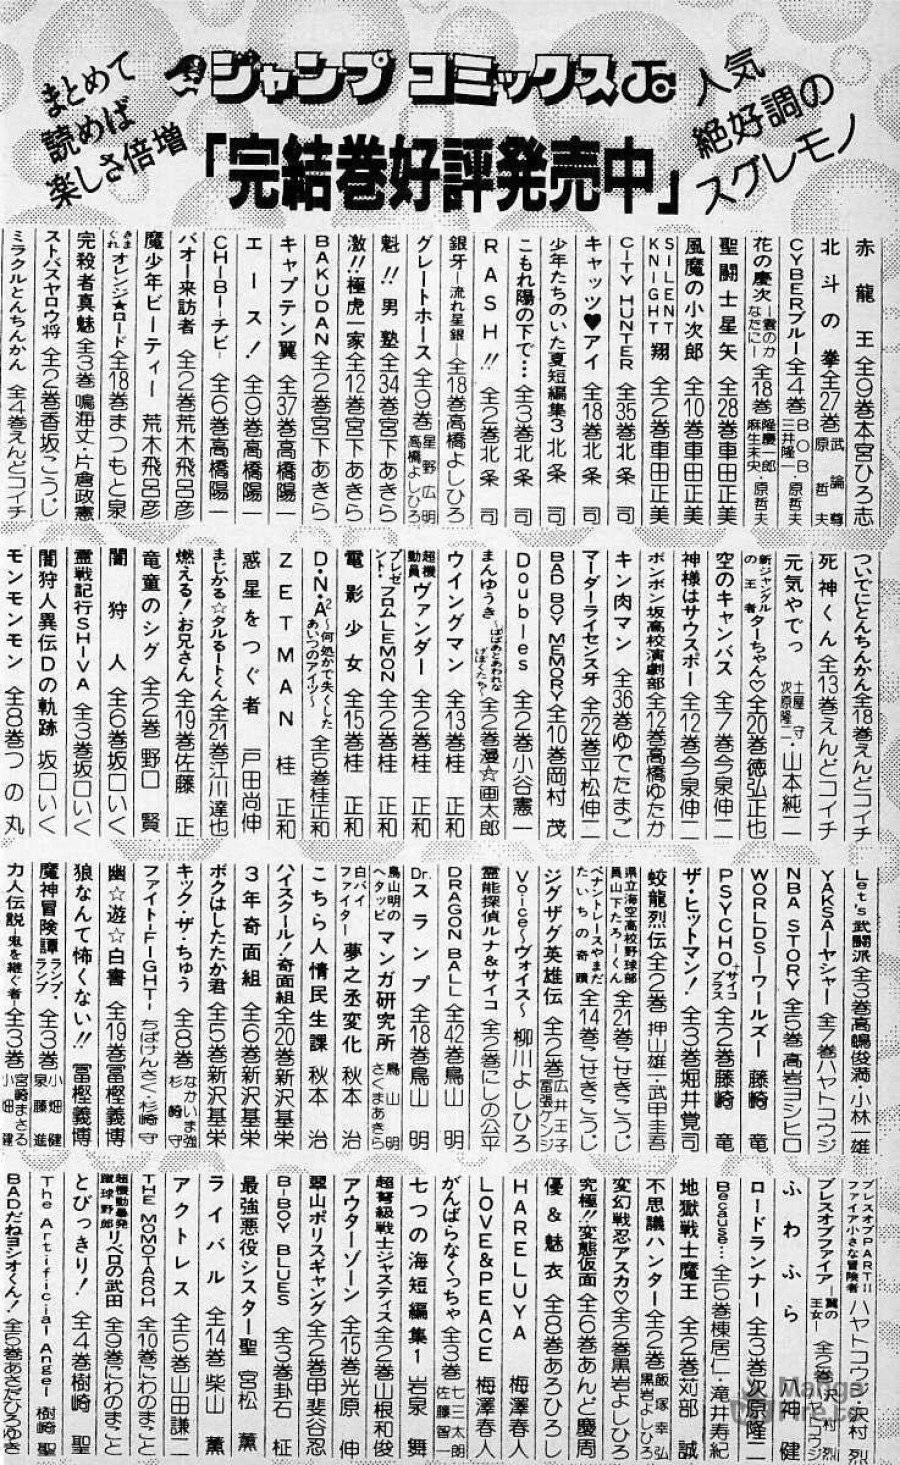 まとめて
読めば
楽しさ倍増
ジャンプ コミックス
人気
絶好調の
スグレモノ
「完結巻好評発売中」
赤龍王 全9巻 本宮ひろ志
北斗の拳 全27巻 武論尊 原哲夫
CYBERブルー 全4巻 BOB・三井隆一・原哲夫
花の慶次―雲のかなたに― 全18巻 隆慶一郎・原哲夫 麻生未央
聖闘士星矢 全28巻 車田正美
風魔の小次郎 全10巻 車田正美
SILENT KNIGHT 翔 全2巻 車田正美
CITY HUNTER 全35巻 北条司
キャッツ♥アイ 全18巻 北条司
少年たちのいた夏 短編集3 北条司
こもれ陽の下で… 全3巻 北条司
RASH!! 全2巻 北条司
銀牙―流れ星銀― 全18巻 高橋よしひろ
グレートホース 全9巻 星野広明 高橋よしひろ
魁!!男塾 全34巻 宮下あきら
激!!極虎一家 全12巻 宮下あきら
BAKUDAN 全2巻 宮下あきら
キャプテン翼 全37巻 高橋陽一
エース! 全9巻 高橋陽一
CHIBI―チビ― 全6巻 高橋陽一
バオー来訪者 全2巻 荒木飛呂彦
魔少年ビーティー 荒木飛呂彦
きまぐれオレンジ★ロード 全18巻 まつもと泉
完殺者真魅 全3巻 鳴海丈・片倉政憲
ストバスヤロウ将 全2巻 香坂こうじ
ミラクルとんちんかん 全4巻 えんどコイチ
ついでにとんちんかん 全18巻 えんどコイチ
死神くん 全13巻 えんどコイチ
元気やでっ 土屋守 次原隆二・山本純二
新ジャングルの王者ターちゃん♡ 全20巻 徳弘正也
空のキャンバス 全7巻 今泉伸二
神様はサウスポー 全12巻 今泉伸二
ボンボン坂高校演劇部 全12巻 高橋ゆたか
キン肉マン 全36巻 ゆでたまご
マーダーライセンス牙 全22巻 平松伸二
BAD BOY MEMORY 全10巻 岡村茂
Doubles 全2巻 小谷憲一
まんゆうき～ばばあとあわれなげぼくたち～ 全2巻 漫☆画太郎
ウイングマン 全13巻 桂正和
超機動員ヴァンダー 全2巻 桂正和
プレゼント・フロムLEMON 全2巻 桂正和
電影少女 全15巻 桂正和
D・N・A²～何処かで失くしたあいつのアイツ～ 全5巻 桂正和
ZETMAN 桂正和
惑星をつぐ者 戸田尚伸
まじかる☆タルるートくん 全21巻 江川達也
燃える!お兄さん 全19巻 佐藤正
竜童のシグ 全2巻 野口賢
闇狩人 全6巻 坂口いく
霊戦記行SHIVA 全3巻 坂口いく
闇狩人異伝Dの軌跡 坂口いく
モンモンモン 全8巻 つの丸
Let's武闘派 全3巻 高嶋俊満・小林一雄
YAKSA―ヤシャー 全7巻 ハヤトコウジ
NBA STORY 全5巻 高岩ヨシヒロ
WORLDS―ワールズ― 藤崎竜
PSYCHO+サイコプラス 全2巻 藤崎竜
ザ・ヒットマン! 全3巻 堀井覚司
蛟龍烈伝 全2巻 押山雄一・武甲圭吾
県立海空高校野球部員山下たろーくん 全21巻 こせきこうじ
ペナントレースやまだたいちの奇蹟 全14巻 こせきこうじ
ジグザグ英雄伝 全2巻 広井王子 富張ケンジ
Voice～ヴォイス～ 柳川よしひろ
霊能探偵ルナ&サイコ 全2巻 にしの公平
DRAGON BALL 全42巻 鳥山明
Dr.スランプ 全18巻 鳥山明
鳥山明のヘタッピマンガ研究所 鳥山明 さくまあきら
白バイファイター夢之丞変化 秋本治
こちら人情民生課 秋本治
ハイスクール!奇面組 全20巻 新沢基栄
3年奇面組 全6巻 新沢基栄
ボクはしたたか君 全5巻 新沢基栄
キック・ザ・ちゅう 全8巻 なかいま強 杉崎守
ファイト―FIGHT― ちばけんさく・杉崎守
幽☆遊☆白書 全19巻 冨樫義博
狼なんて怖くない!! 冨樫義博
魔神冒険譚ランプ・ランプ 全3巻 小畑健 泉藤進
力人伝説―鬼を継ぐ者― 全3巻 宮崎まさる 小畑健
ブレスオブファイアPARTII 小さな冒険者 ハヤトコウジ 沢村烈
ブレスオブファイア―翼の王女― 全2巻 沢村烈 ハヤトコウジ
ふわふら 神健
ロードランナー 全3巻 次原隆二
Because… 全5巻 棟居仁・滝井寿紀
地獄戦士魔王 全2巻 苅部誠
不思議ハンター 全2巻 飯塚幸弘 黒岩よしひろ
変幻戦忍アスカ♡ 全2巻 黒岩よしひろ
究極!!変態仮面 全6巻 あんど慶周
優&魅衣 全8巻 あろひろし
HARELUYA 梅澤春人
LOVE&PEACE 梅澤春人
がんばらなくっちゃ 全3巻 七三太朗 佐藤智一
七つの海 短編集1 岩泉舞
超弩級戦士ジャスティス 全2巻 山根和俊
アウターゾーン 全15巻 光原伸
翠山ポリスギャング 全2巻 甲斐谷忍
B-BOY BLUES 全3巻 卦石柾
最強悪役シスター聖 宮松薫
ライバル 全14巻 柴山薫
アクトレス 全5巻 山田謙二
THE MOMOTAROH 全10巻 にわのまこと
超機動暴発蹴球野郎リベロの武田 全9巻 にわのまこと
とびっきり! 全4巻 樹崎聖
The Artificial Angel 樹崎聖
BADだねヨシオくん! 全5巻 あさだひろゆき
Manga
Fire.to